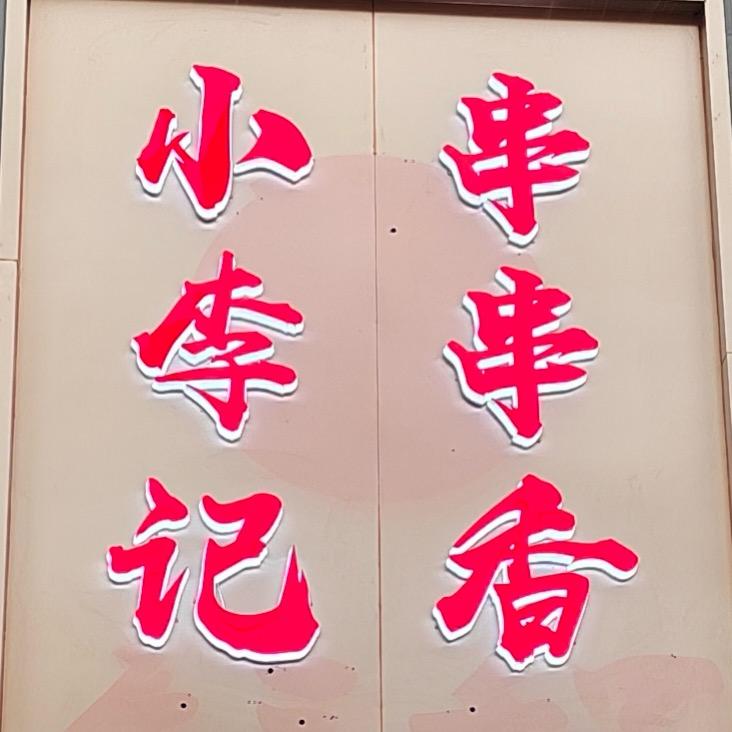 小李记
串串香